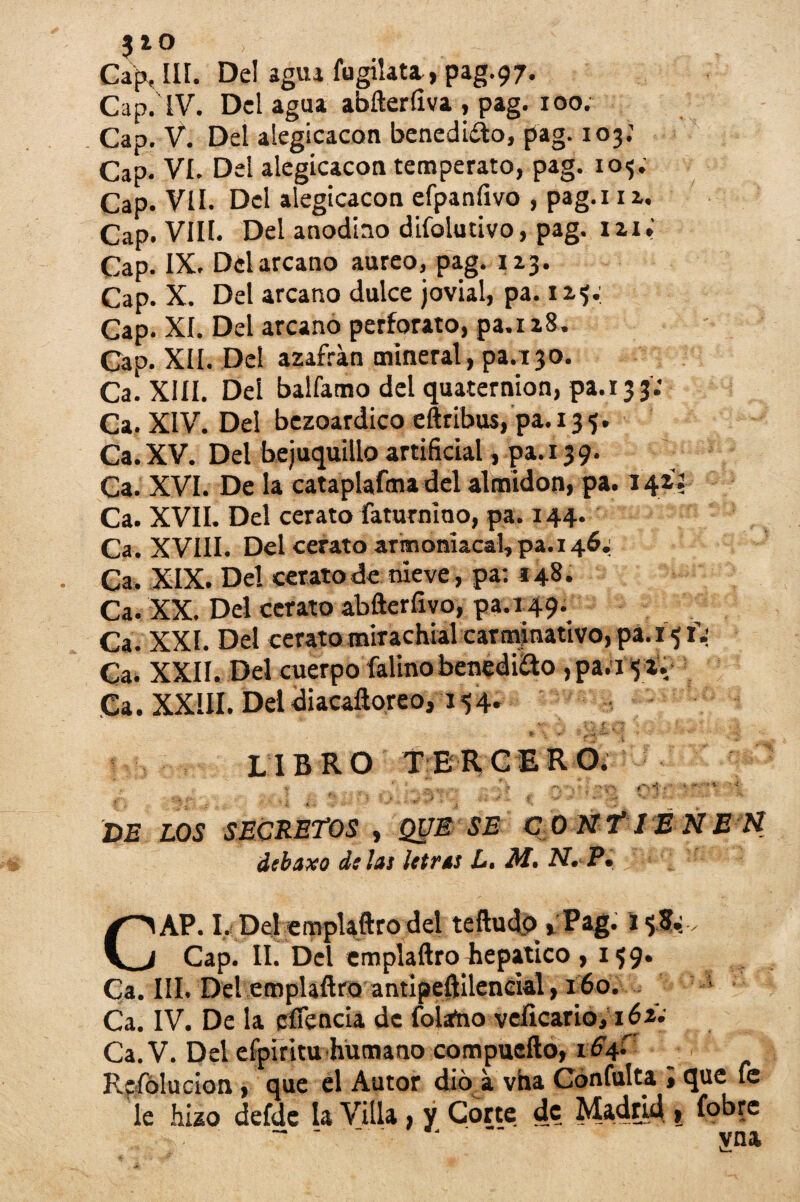 320
Cap. III. Del agua fugilata, pag.97.
Cap. IV. Del agua abſterſiva , pag. 100.
Cap. V. Del alegicacon benedicto, pag. 103.
Cap. VI. Del alegicacon temperato, pag. 105.
Cap. VII. Del alegicacon eſpanſivo , pag.112.
Cap. VIII. Del anodino diſolutivo, pag. 121.
Cap. IX. Del arcano aureo, pag. 123.
Cap. X. Del arcano dulce jovial, pa. 125.
Cap. XI. Del arcano perforato, pa.128.
Cap. XII. Del azafràn mineral, pa.130.
Ca. XIII. Del balſamo del quaternion, pa.133.
Ca. XIV. Del bezoardico eſtribus, pa.135.
Ca.XV. Del bejuquillo artificial, pa.139.
Ca. XVI. De la cataplaſma del almidon, pa. 142.
Ca. XVII. Del cerato ſaturnino, pa. 144.
Ca. XVIII. Del cerato armoniacal, pa.146.
Ca. XIX. Del cerato de nieve, pa: 148.
Ca. XX. Del cerato abſterſivo, pa.149.
Ca. XXI. Del cerato mirachial carminativo, pa.151.
Ca. XXII. Del cuerpo ſalino benedicto ,pa.152.
Ca. XXIII. Del diacaſtoreo, 154.
LIBRO TERCERO.
DE LOS SECRETOS , QUE SE CONTIENEN
debaxo de las letras L. M. N. P.
CAP. I. Del emplaſtro del teſtudo , Pag. 158.
Cap. II. Del emplaſtro hepatico , 159.
Ca. III. Del emplaſtro antipeſtilencial, 160.
Ca. IV. De la eſſencia de ſolano veſicario, 162.
Ca.V. Del eſpiritu humano compueſto, 164.
Reſolucion , que el Autor diò à vna Conſulta , que ſe
le hizo deſde la Villa , y Corte de Madrid , ſobre
vna